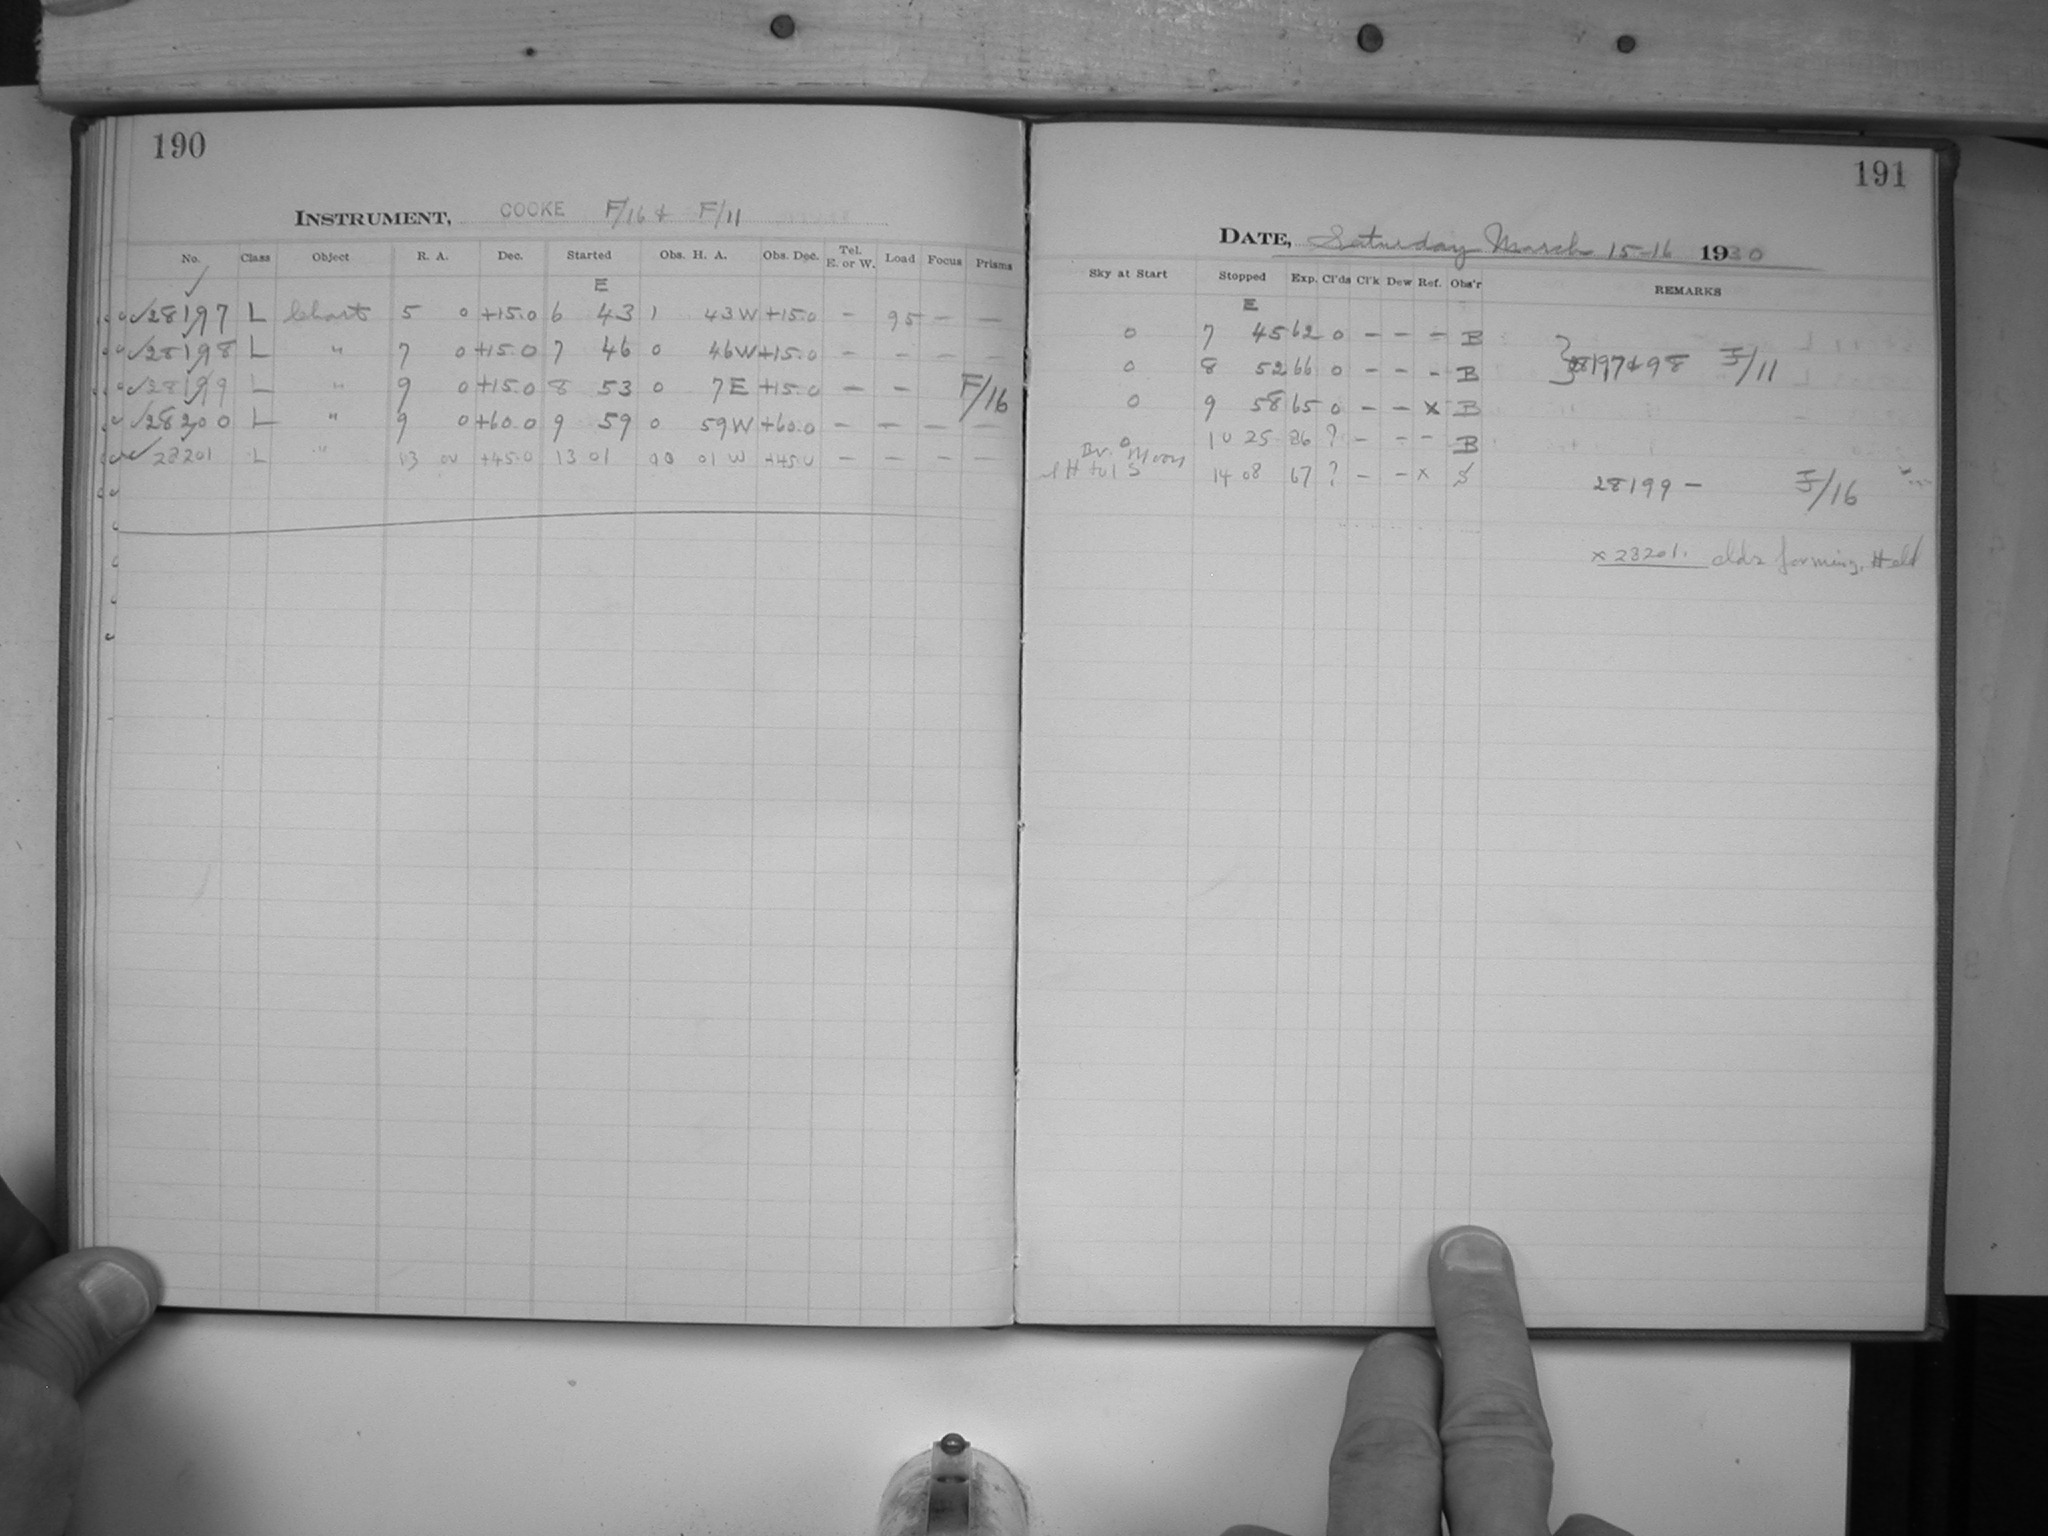 190
INSTRUMENT, COOKE F/16 & F/11
No. Class Object R. A. Dec. Started Obs. H. A. Obs. Dec. Tel. E. or W. Load Focus Prisms
E
28197 L Chart 5 0 +15.0 6 43 1 43W +15.0 - 95 - -
28198 L " 7 0 +15.0 7 46 0 46W +15.0 - - - -
28199 L " 9 0 +15.0 8 53 0 7E +15.0 - - F/16
28200 L " 9 0 +60.0 9 59 0 59W +60.0 - - - -
28201 L " 13 00 +45.0 13 01 00 01 W +45.0 - - - -
191
DATE, Saturday March 15-16 1930
Sky at Start Stopped Exp. Cl'ds Cl'k Dew Ref. Obs'r REMARKS
E
0 7 45 62 0 - - - B
0 8 52 66 0 - - - B } 28197 & 98 F/11
0 9 58 65 0 - - x B
0 10 25 86 ? - - - B
Br. Moon
14 08 67 ? - - x S
28199 - F/16
x 28201. clds forming. Held